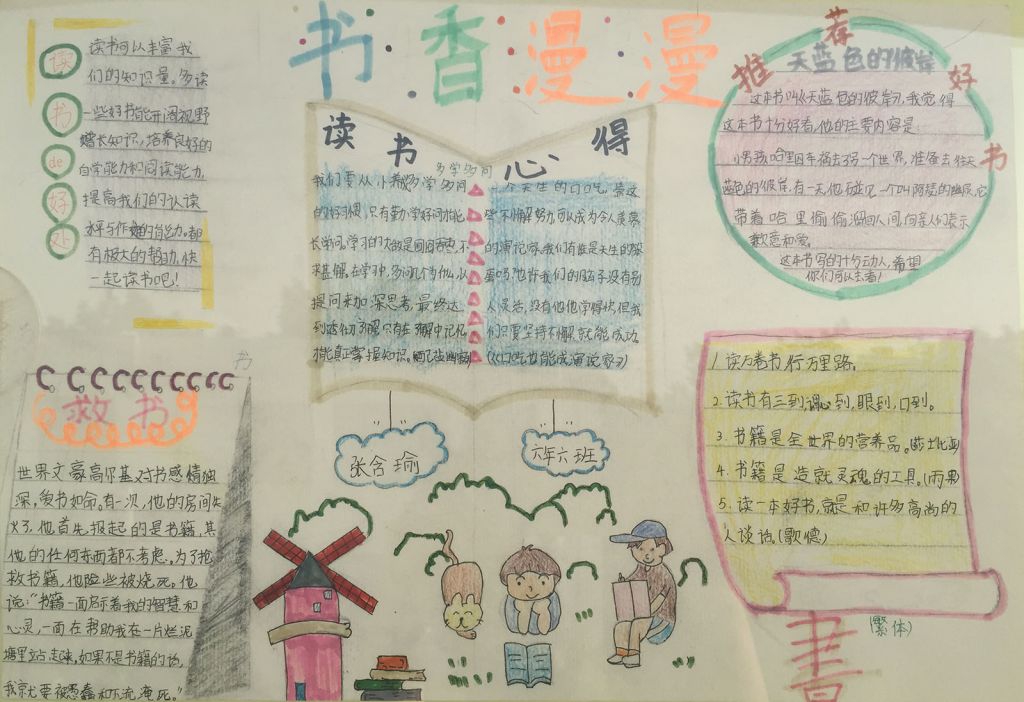 书香漫漫
读书de好处
读书可以丰富我
们的知识量。多读
一些好书能开阔视野
增长知识,培养良好的
自学能力和阅读能力,
提高我们的认读
水平与作文的能力。都
有极大的帮助,快
一起读书吧!
读书心得
多学多问
我们要从小养多学多问
的好习惯,只有勤学好问才能
长学问。学习的大敌是囫囵吞枣,不
求甚解。在学习中,多问几个为什么,从
提问来加深思考,最终达
到透彻了解只有在了解中记忆
才能真正掌握知识。
一个天生的口吃,靠这
些不懈努力,可以成为令人羡慕
的演说家。我们有谁是天生的笨
蛋吗?也许我们的脑子没有别
人灵活,没有他他学得快,但我
们只要坚持不懈就能成功
《口吃也能成演说家》
推荐好书
天蓝色的彼岸
这本书叫《天蓝色的彼岸》,我觉得
这本书十分好看,他的主要内容是:
小男孩哈里因车祸去了另一个世界,准备去往天
蓝色的彼岸。有一天他碰见一个叫阿瑟的幽灵,它
带着哈里偷偷溜回人间,向亲人们表示
歉意和爱。
这本书写的十分动人,希望
你们可以去看!
书
救书
世界文豪高尔基对书感情独
深,爱书如命。有一次,他的房间失
火了,他首先报起的是书籍,其
他的任何东西都不考虑。为了抢
救书籍,他险些被烧死。他
说:“书籍一面启示着我的智慧和
心灵,一面在帮助我在一片烂泥
塘里站起来,如果不是书籍的话,
我就要被愚蠢和下流淹死。”
张含瑜
六年六班
1. 读万卷书,行万里路。
2. 读书有三到,谓心到,眼到,口到。
3. 书籍是全世界的营养品。(莎士比亚)
4. 书籍是造就灵魂的工具。(雨果)
5. 读一本好书,就是和许多高尚的
人谈话。(歌德)
書
(繁体)